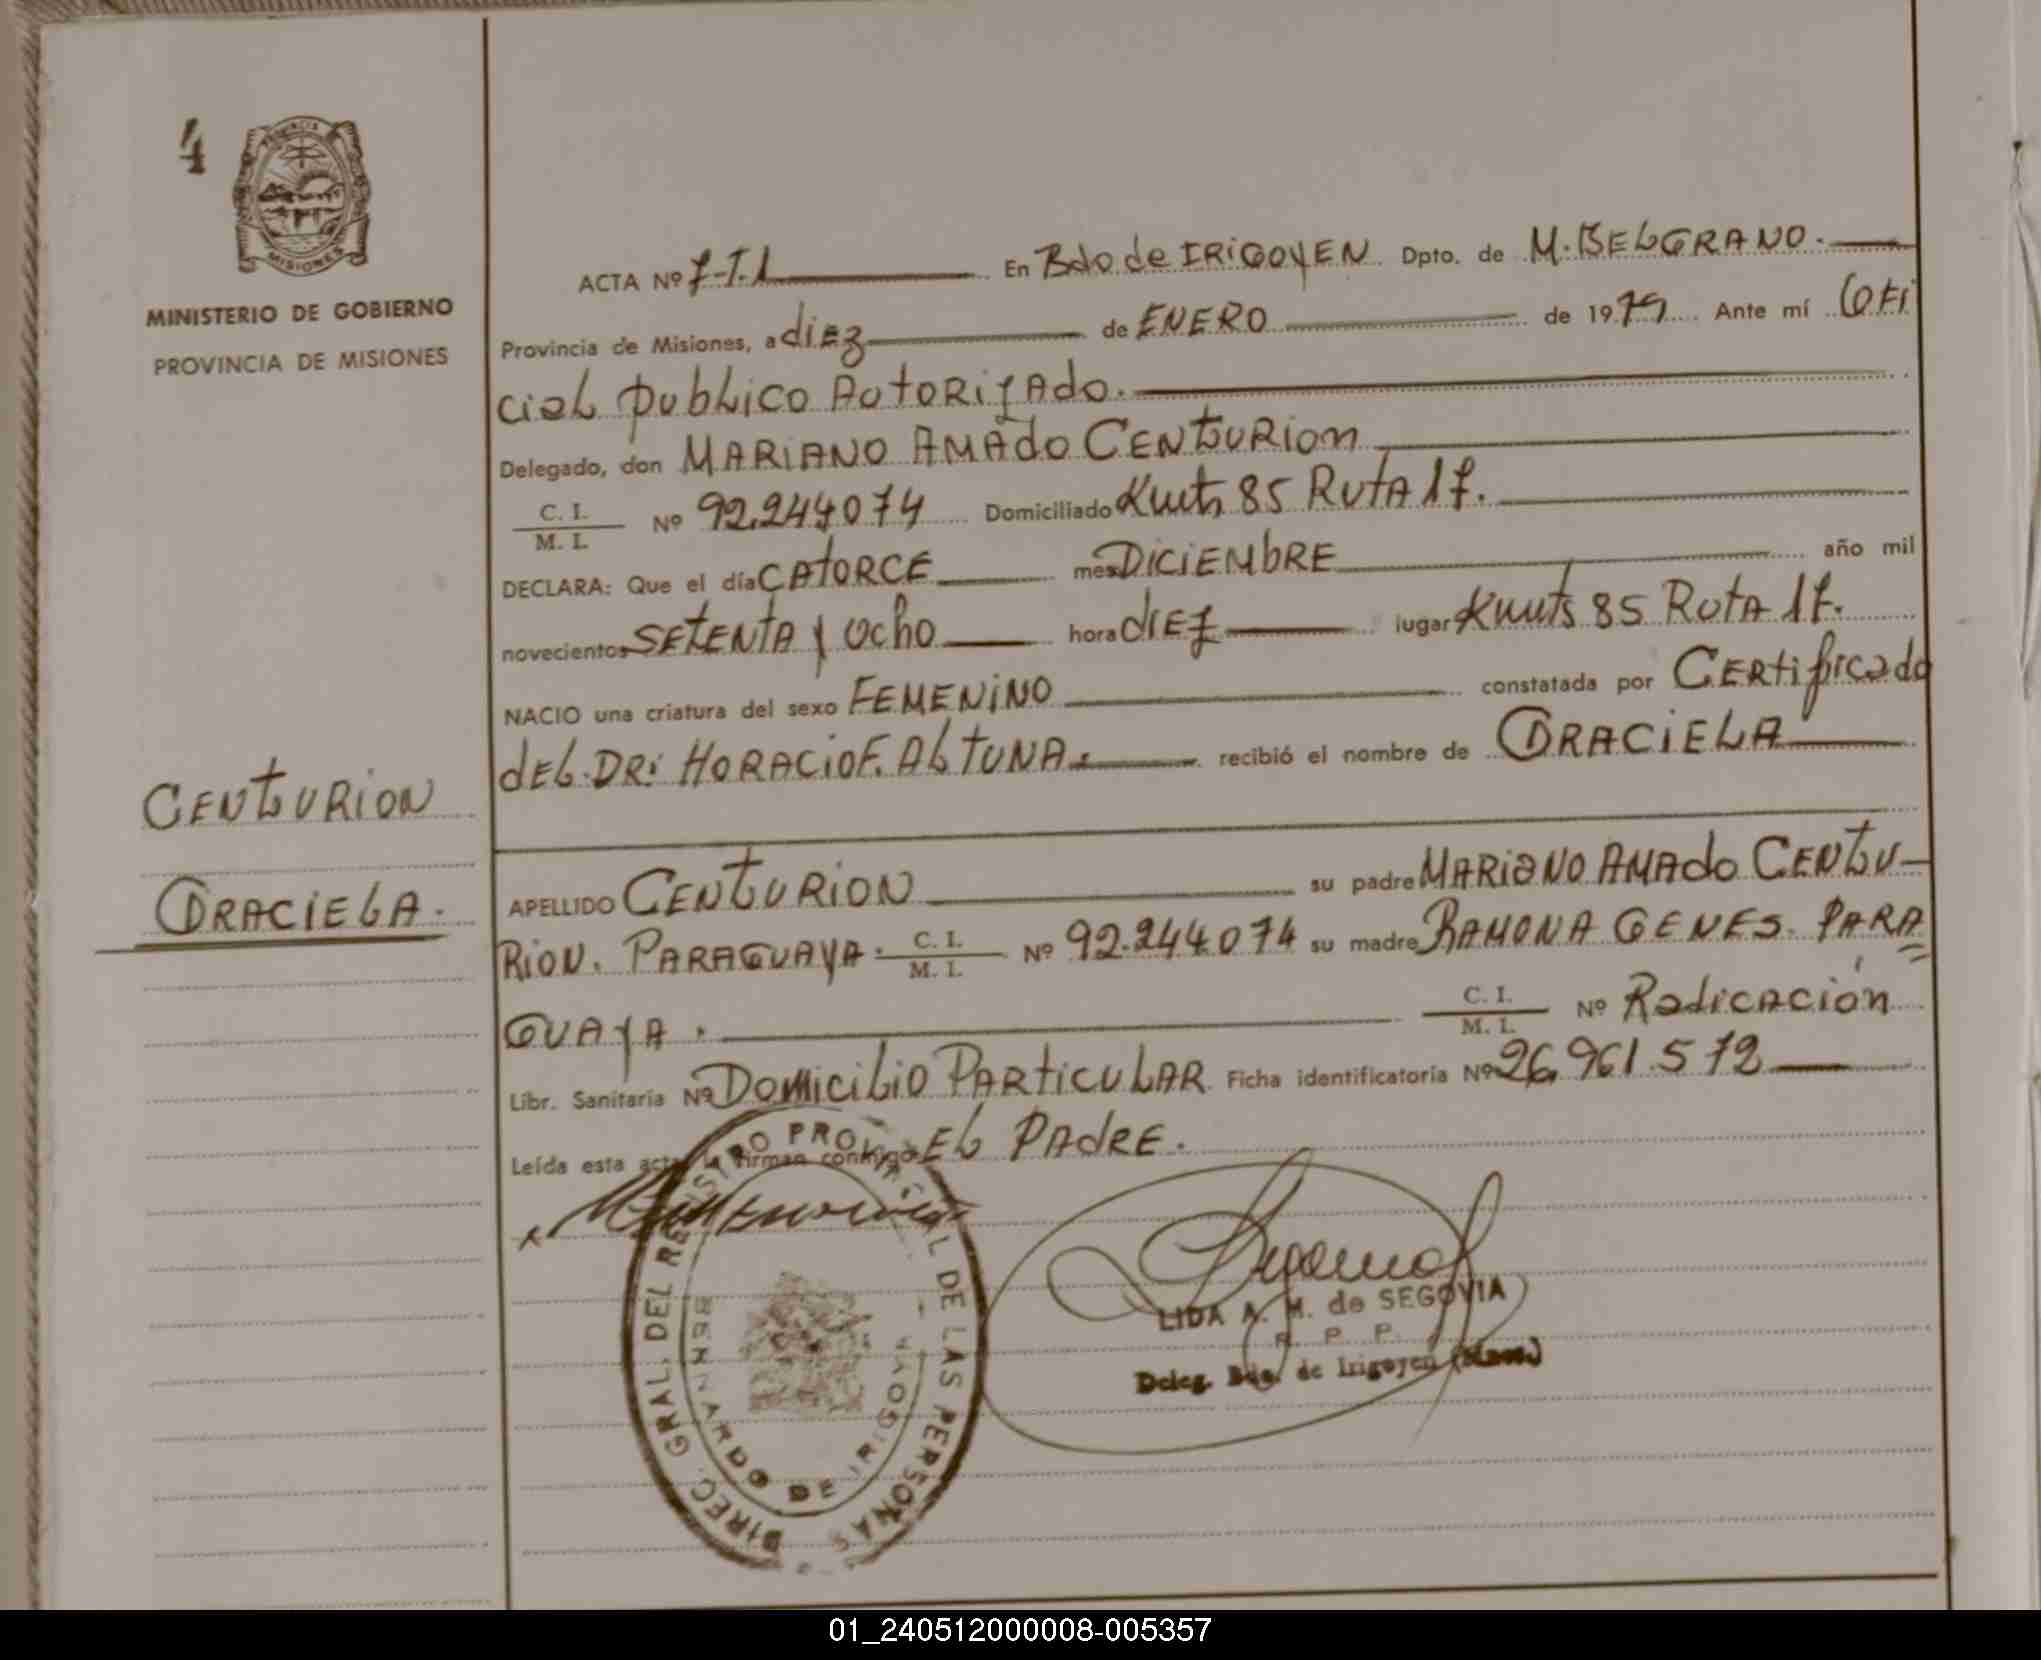 4
PROVINCIA
MISIONES
MINISTERIO DE GOBIERNO
PROVINCIA DE MISIONES
CENTURION
GRACIELA.
ACTA Nº 7-T.1 En Bdo de IRIGOYEN Dpto. de M. BELGRANO.
Provincia de Misiones, a diez de ENERO de 1979 Ante mí Ofi
cial publico Autorizado.
Delegado, don MARIANO AMADO CENTURION
C. I. / M. I. Nº 92.244074 Domiciliado Kmts 85 RUTA 17.
DECLARA: Que el día CATORCE mes DICIEMBRE año mil
novecientos SETENTA y Ocho hora diez lugar Kmts 85 RUTA 17.
NACIO una criatura del sexo FEMENINO constatada por CERtificado
dEL.DR: HORACIO F. ALTUNA. recibió el nombre de GRACIELA
APELLIDO CENTURION su padre MARIANO AMADO CENTU-
RION. PARAGUAYA. C. I. / M. I. Nº 92.244.074 su madre RAMONA GENES. PARA
GUAYA. C. I. / M. I. Nº Radicación
Libr. Sanitaria Nº Domicilio PARTICULAR Ficha identificatoria Nº 26.961.572
Leída esta acta la firman conmigo EL PADRE.
DIREC. GRAL. DEL REGISTRO PROVINCIAL DE LAS PERSONAS
BERNARDO DE IRIGOYEN
LIDA A. M. de SEGOVIA
R. P. P.
Deleg. Bdo. de Irigoyen (Mnes.)
01_240512000008-005357